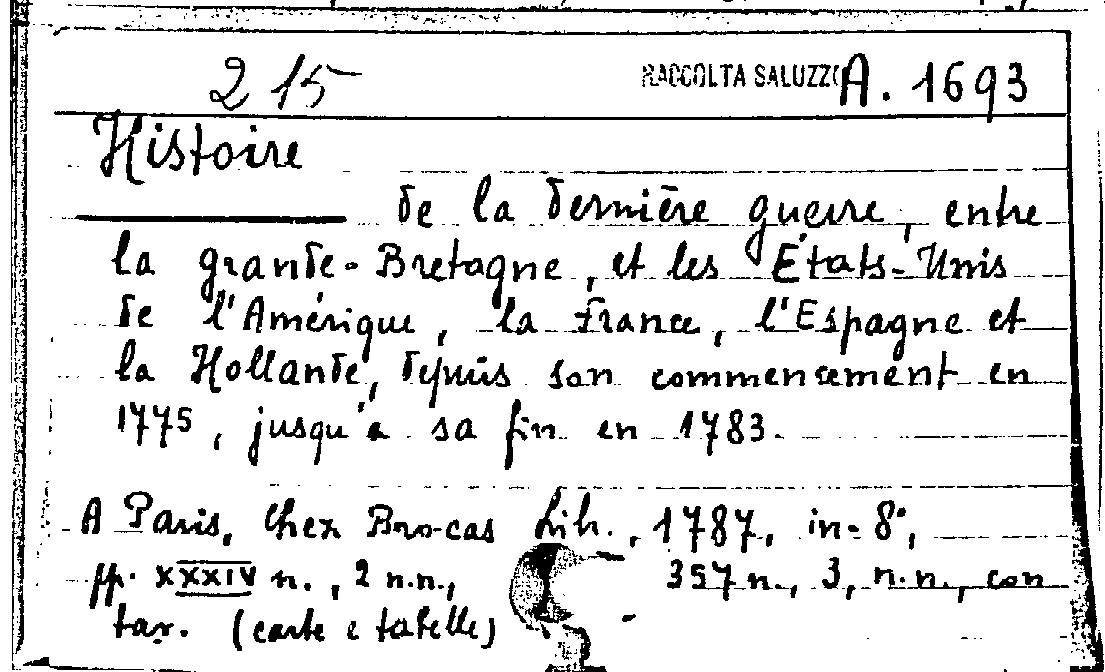 215 RACCOLTA SALUZZO A. 1693
Histoire
de la dernière guerre, entre
la grande-Bretagne, et les États-Unis
de l'Amérique, la France, l'Espagne et
la Hollande, depuis son commencement en
1775, jusqu'à sa fin en 1783.
A Paris, chez Brocas Lib., 1787, in-8°,
pp. XXXIV n., 2 n.n., 357 n., 3, n.n., con
tav. (carte e tabelle)